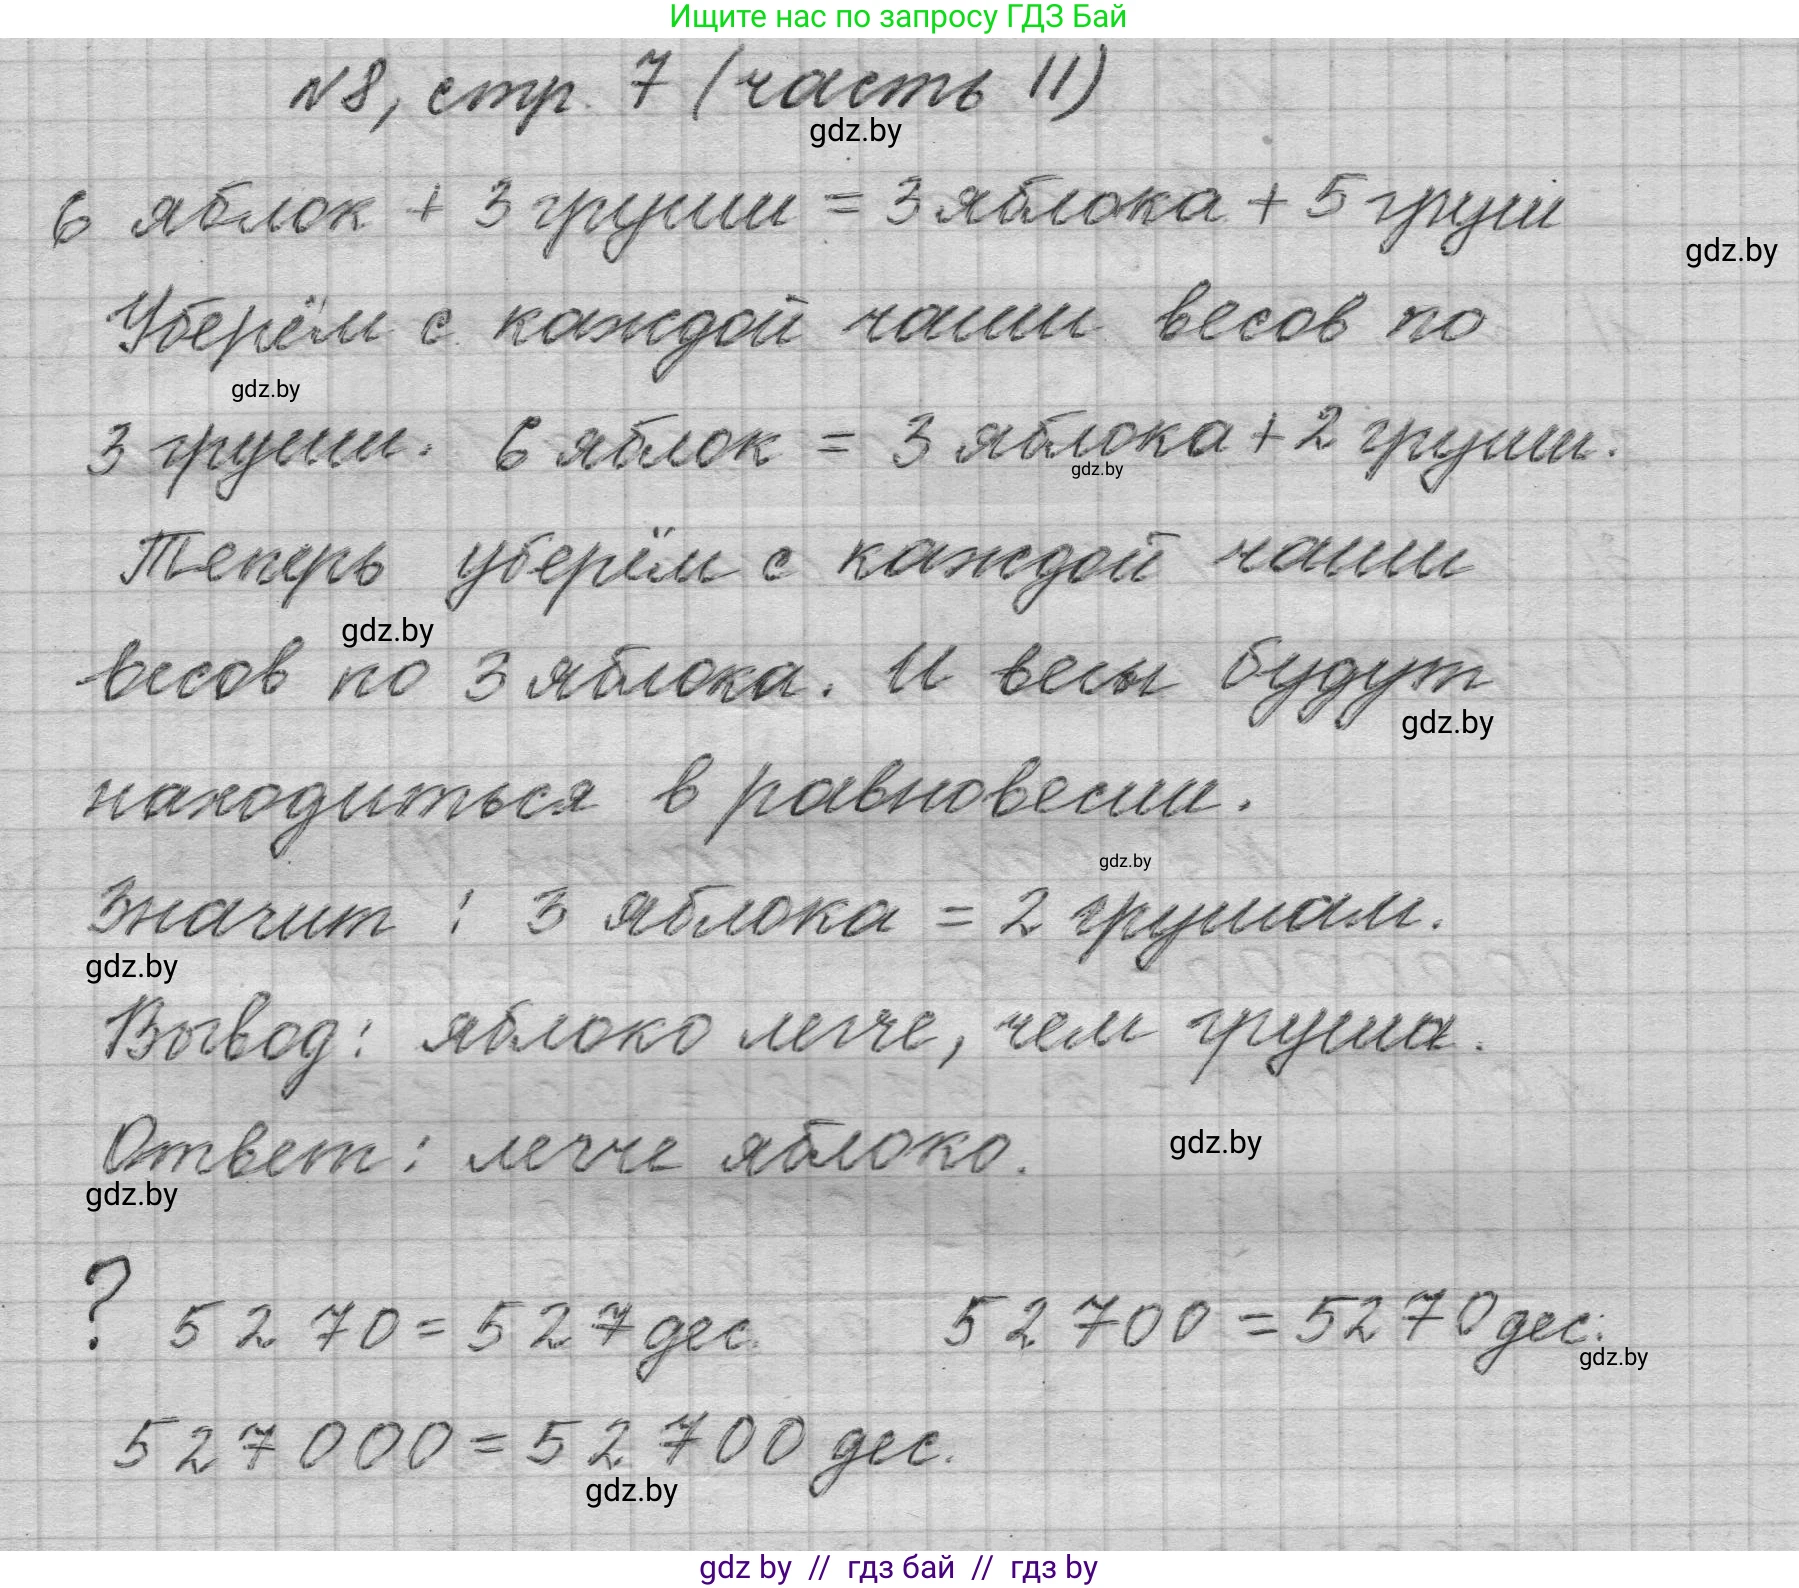 Ищите нас по запросу ГДЗ Бай
№8, стр. 7 (часть II)
gdz.by
6 яблок + 3 груши = 3 яблока + 5 груш
gdz.by
Уберём с каждой чаши весов по
gdz.by
3 груши. 6 яблок = 3 яблока + 2 груши.
gdz.by
Теперь уберём с каждой чаши
gdz.by
весов по 3 яблока. И весы будут
gdz.by
находиться в равновесии.
gdz.by
Значит: 3 яблока = 2 грушам.
gdz.by
Вывод: яблоко легче, чем груша.
Ответ: легче яблоко.
gdz.by
gdz.by
? 5270 = 527 дес. 52700 = 5270 дес.
gdz.by
527000 = 52700 дес.
gdz.by
gdz by // гдз бай // гдз by